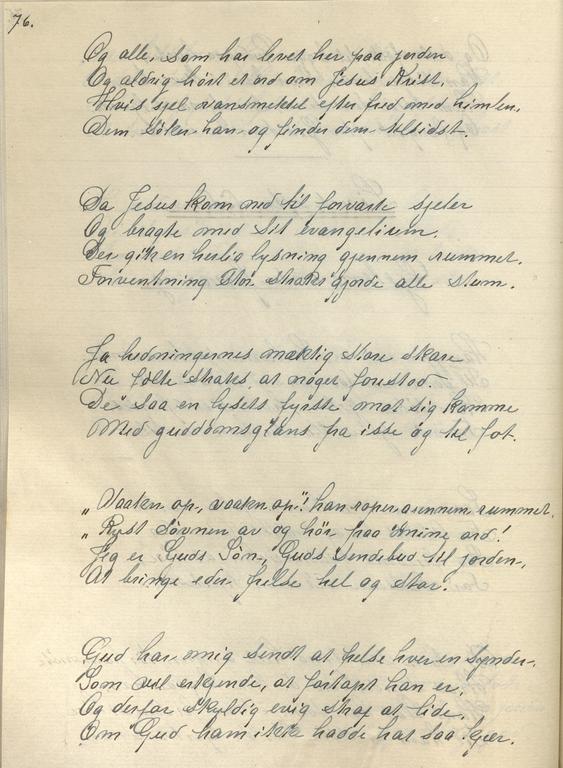 76.
Og alle, som har levet her paa jorden
Og aldrig hört et ord om Jesus Krist,
Hvis sjel vansmektet efter fred med himlen,
Dem söker han og finder dem tilsidst.
Da Jesus kom ned til forvarte sjeler
Og bragte med sit evangelium.
Der gik en herlig lysning gjennem rummet.
Forventning stor straks gjorde alle stum.
Ja hedningernes mæktig store skare
Nu fölte straks, at noget forestod.
De saa en lysets fyrste mot sig komme
Med guddomsglans fra isse og til fot.
„Vaakn op, vaakn op"! han roper gjennem rummet.
„Ryst sövnen av og hör paa mine ord!
Jeg er Guds Sön, Guds sendebud til jorden,
At bringe eder frelse hel og stor.
Gud har mig sendt at frelse hver en synder,
Som vil erkjende, at fortapt han er,
Og derfor skyldig evig straf at lide,
Om Gud ham ikke hadde hat saa kjær.